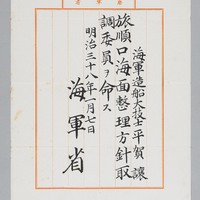 海軍造船大技士平賀讓
旅順口海面整理方針取
調委員ヲ命ス
明治三十八年一月七日
海軍省